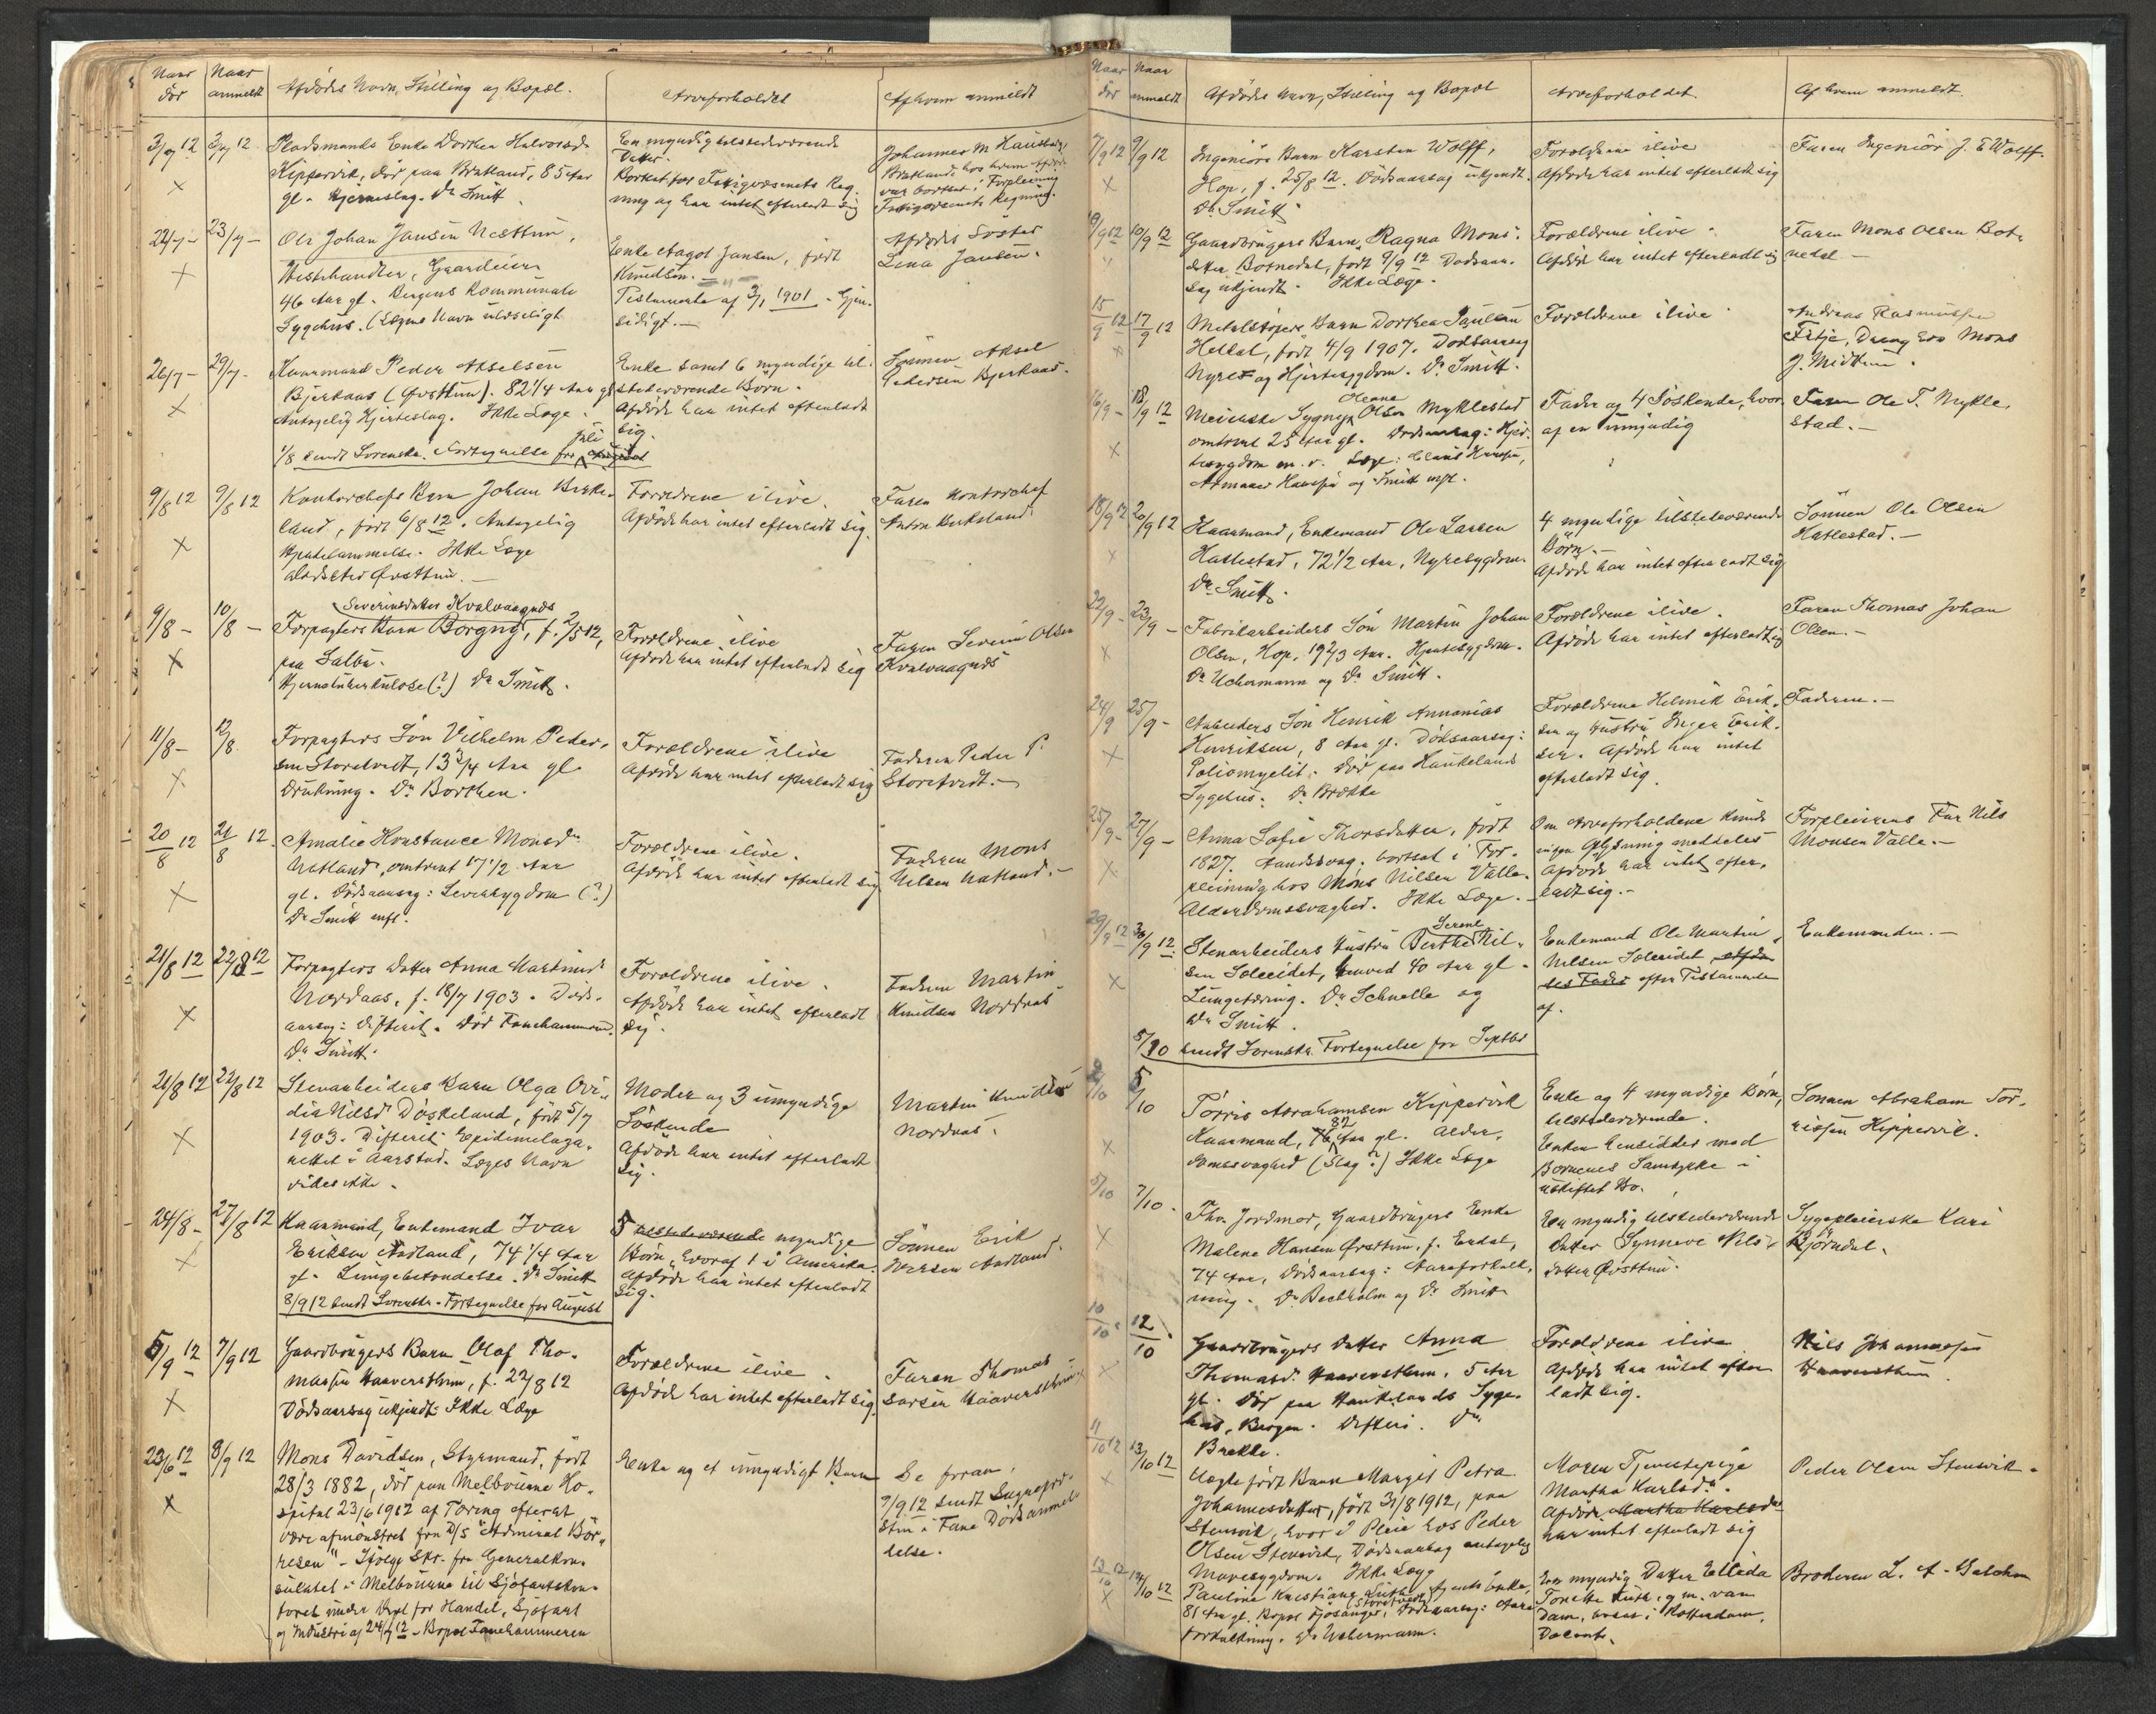 Naar død
Naar anmeldt
Afdødes Navn, Stilling og Bopæl.
Arveforholdet
Af hvem anmeldt
3/7 12
3/7 12
Pladsmands Enke Dorthea Halvorsd.
Kippervik, død paa Bratland, 85 Aar
gl. Hjerneslag. Dr Smitt
En myndig tilstedeværende
Datter.
Bortsat for Fattigvæsenets Reg-
ning og har intet efterladt sig
Johannes M.
Bratland hos hvem Afdøde
var bortsat i Forpleining
Fattigvæsenets Regning.
22/7 -
23/7 -
Ole Johan Jansen Nesttun,
Hestehandler, Gaardeier
46 Aar gl. Bergens Kommunale
Sygehus. (Lægens Navn ulæseligt
Enke Magot Jansen, født
Knudsen.
Testamente af 3/1 1901. Gjen-
sidigt.
Afdødes Søster
Lina Jansen.
26/7 -
29/7 -
Kaarmand Peder Akselsen
Bjerkaas (Øvsttun). 82 1/4 Aar gl
Antagelig Hjerteslag. Ikke Læge.
1/8 sendt Sorenskr. Fortegnelse for juli
Enke samt 6 myndige til-
stedeværende Børn.
Afdøde har intet efterladt
sig.
Sønnen Aksel
Pedersen Bjerkaas.
9/8 12
9/8 12
Kontorchefs Barn Johan Birke-
land, født 6/8 12. Antagelig
Hjertelammelse. Ikke Læge
Øvsttun.
Forældrene ilive
Afdøde har intet efterladt sig.
Faren Kontorchef
Anton Birkeland.
9/8 -
10/8 -
Severinsdatter Kvalvaagnes
Forpagters Barn Borgny, f. 2/5 12,
paa Salbu.
Hjernetuberkulose (?) Dr Smitt.
Forældrene ilive
Afdøde har intet efterladt sig
Faren Severin Olsen
Kvalvaagnes
11/8 -
12/8
Forpagters Søn Vilhelm Peder-
sen Storetvedt, 13 3/4 Aar gl.
Drukning. Dr Borthen.
Forældrene ilive
Afdøde har intet efterladt sig
Faderen Peder P.
Storetvedt.
20/8 12
21/8 12.
Amalie Konstance Monsdr
Natland, omtrent 17 1/2 Aar
gl. Dødsaarsag: Leversygdom (?)
Dr Smitt
Forældrene ilive.
Afdøde har intet efterladt sig
Faderen Mons
Nilsen Natland.
21/8 12
22/8 12
Forpagters Datter Anna Martinsdr
Nordaas, f. 18/7 1903. Døds-
aarsag: Difterit. Død Fanehammeren.
Dr Smitt.
Forældrene ilive.
Afdøde har intet efterladt
sig.
Faderen Martin
Knudsen Nordaas
21/8 12
22/8 12
Stenarbeiders Barn Olga Ovi-
dia Nilsd. Døskeland, født 5/7
1903. Difterit. Epidemilaza-
rettet i Aarstad. Læges Navn
vides ikke.
Moder og 3 umyndige
Søskende
Afdøde har intet efterladt
sig.
Martin Knudsen
Nordaas.
24/8 -
27/8 12
Kaarmand, Enkemand Ivar
Eriksen Aadland, 74 1/4 Aar
gl. Lungebetændelse. Dr Smitt
8/9 12 sendt Sorenskr. Fortegnelse for August
5 tilstedeværende myndige
Børn, hvoraf 1 i Amerika.
Afdøde har intet efterladt
sig.
Sønnen Erik
Iversen Aadland.
5/9 12
7/9 12
Gaardbrugers Barn Olaf Tho-
massen Haaversthun, f. 22/8 12
Dødsaarsag ukjendt. Ikke Læge
Forældrene ilive.
Afdøde har intet efterladt sig.
Faren Thomas
Larsen Haaversthun
23/6 12
8/9 12
Mons Davidsen, Styrmand, født
28/3 1882, død paa Melbourne Ho-
spital 23/6 1912 af Tæring efter at
være afmønstret fra D/S "Admiral Bør-
resen" - Ifølge Skr. fra Generalkon-
sulatet i Melbourne til Sjøfartskon-
toret under Dept for Handel, Sjøfart
og Industri af 24/7 12 - Bopæl Fanehammeren
Enke og et umyndigt Barn
Se foran.
9/9 12 sendt
i Fane Dødsanmel-
delse.
Naar død
Naar anmeldt
Afdødes Navn, Stilling og Bopæl
Arveforholdet.
Af hvem anmeldt.
7/9 12
9/9 12
Ingeniørs Barn Karsten Wolff,
Hop, f. 25/8 12. Dødsaarsag ukjendt.
Dr. Smitt
Forældrene ilive
Afdøde har intet efterladt sig
Faren Ingeniør J. E Wolff.
9/9 12
10/9 12
Gaardbrugers Barn Ragna Mons-
datter Botnedal, født 9/9 12 Dødsaar-
sag ukjendt. Ikke Læge.
Forældrene ilive.
Afdøde har intet efterladt sig
Faren Mons Olsen Bot-
nedal -
15/9 12
17/9 12
Metalstøpers Barn Dorthea Paulsen
Helldal, født 4/9 1907. Dødsaarsag
Nyre- og Hjertesygdom. Dr. Smitt.
Forældrene ilive
Andreas Rasmussen
Fitje, Dreng hos Mons
J. Midttun.
16/9 -
18/9 12
Meierske Sygnye Oleane Olsen Myklestad
omtrent 25 Aar gl. Dødsaarsag: Hjer-
tesygdom m.v. Læge: Claus Hanssen,
Armauer Hansen og Smitt
Fader og 4 Søskende, hvor-
af en umyndig
Faren Ole T. Mykle-
stad.
18/9 12
20/9 12
Kaarmand, Enkemand Ole Larsen
Hatlestad, 72 1/2 Aar, Nyresygdom.
Dr. Smitt.
4 myndige tilstedeværende
Børn.
Afdøde har intet efterladt sig
Sønnen Ole Olsen
Hatlestad.
22/9 -
23/9 -
Fabrikarbeiders Søn Martin Johan
Olsen, Hop, 19 2/3 Aar. Hjertesygdom.
Dr. Uchermann og Dr. Smitt.
Forældrene ilive.
Afdøde har intet efterladt sig
Faren Thomas Johan
Olsen.
24/9
25/9 -
Arbeiders Søn Henrik Annanias
Henriksen, 8 Aar gl. Dødsaarsag:
Poliomyelit. Død paa Haukelands
Sygehus. Dr Brække
Forældrene Helmik Erik-
sen og Hustru Inger Erik-
sen. Afdøde har intet
efterladt sig.
Faderen.
25/9 -
27/9 -
Anna Sofie Thorsdatter, født
1827. Aandssvag. bortsat i For-
pleining hos Mons Nilsen Valle.
Alderdomssvaghed. Ikke Læge.
Om Arveforholdene kunde
ingen Oplysning meddeles
Afdøde har intet efter-
ladt sig.
Forpleierens Far Nils
Monsen Valle.
29/9 12
30/9 12
Stenarbeiders Hustru Berthe Serene Nil-
sen Soleidet, henved 40 Aar gl.
Lungetæring. Dr Schnelle og
Dr Smitt.
Enkemand Ole Martin
Nilsen Soleidet,
efter Testamente
af.
Enkemanden.
5/10 sendt Sorenskr. Fortegnelse for Septbr
2/10
5/10
Tørris Abrahamsen Kippervik
Kaarmand, 82 Aar gl. Alder-
domssvaghed (Slag?) Ikke Læge
Enke og 4 myndige Børn,
tilstedeværende.
Enken hensidder med
Børnenes Samtykke i
uskiftet Bo.
Sønnen Abraham Tør-
rissen Kippervik.
5/10
7/10.
Fhv. Jordmor, Gaardbrugers Enke
Malene Hansen Øvsttun, f. Endal,
74 Aar, Dødsaarsag: Aareforkalk-
ning. Dr Bechholm og Dr Smitt
En myndig tilstedeværende
Datter Synneve Nils-
datter Øvsttun.
Sygepleierske Kari
Bjørndal.
10/10
12/10
Gaardbrugers Datter Anna
Thomasd. Haaversthun, 5 Aar
gl. Død paa Haukelands Syge-
hus, Bergen. Difteri. Dr.
Brekke.
Forældrene ilive
Afdøde har intet efter-
ladt sig.
Nils Johannessen
Haaversthun
11/10 12
13/10 12
Uægte født Barn Margit Petra
Johannesdatter, født 31/8 1912, paa
Stensvik, hvor i Pleie hos Peder
Olsen Stensvik, Dødsaarsag antagelig
Mavesygdom. Ikke Læge
Moren Tjenestepige
Martha Karlsdr.
Afdøde Martha Karlsdr
har intet efterladt sig
Peder Olsen Stensvik.
13/10 12
14/10 12
Pauline Kristiane Agents Enke,
81 Aar gl. Bopæl Fjøsanger, (Storetvedt) Dødsaarsag: Aare-
forkalkning. Dr Uchermann.
En myndig Datter Elleida
Tonette g.m. van
Dam, bosat i Rotterdam,
Docent.
Broderen L. A.